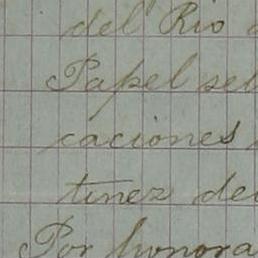 del Rio
Papel sel
caciones
tinez de
Por honora